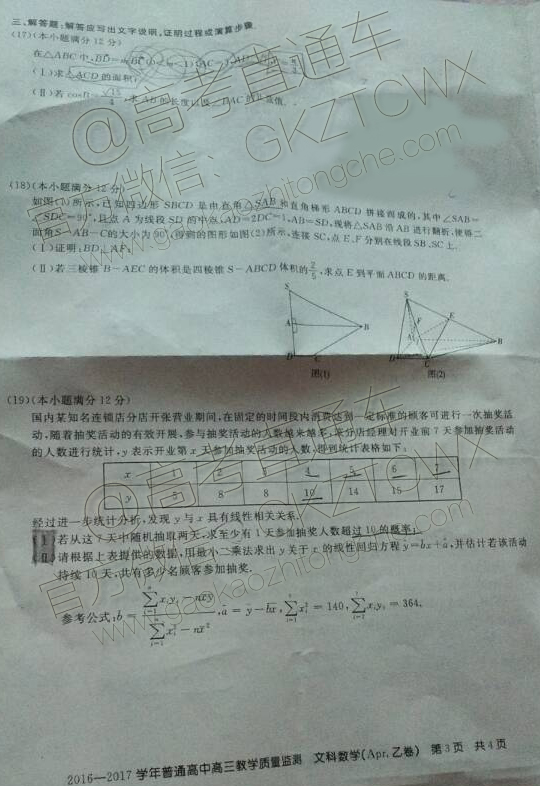 三、解答题:解答应写出文字说明,证明过程或演算步骤.
(17)(本小题满分12分)
在△ABC中,
(Ⅰ)求△ACD的面积;
(Ⅱ)若cosB=√15/4,求AB的长度以及∠BAC的正弦值.
(18)(本小题满分12分)
如图(1)所示,已知四边形SBCD是由直角△SAB和直角梯形ABCD拼接而成的,其中∠SAB=
∠SDC=90°,且点A为线段SD的中点,AD=2DC=1,AB=SD,现将△SAB沿AB进行翻折,使得二
面角S-AB-C的大小为90°,得到的图形如图(2)所示,连接SC,点E、F分别在线段SB、SC上.
(Ⅰ)证明:BD⊥AF;
(Ⅱ)若三棱锥B-AEC的体积是四棱锥S-ABCD体积的2/5,求点E到平面ABCD的距离.
S A B D C 图(1)
S F E A B D C 图(2)
(19)(本小题满分12分)
国内某知名连锁店分店开张营业期间,在固定的时间段内消费达到一定标准的顾客可进行一次抽奖活
动,随着抽奖活动的有效开展,参与抽奖活动的人数越来越多,某分店经理对开业前7天参加抽奖活动
的人数进行统计,y表示开业第x天参加抽奖活动的人数,得到统计表格如下:
x 1 2 3 4 5 6 7
y 5 8 8 10 14 15 17
经过进一步统计分析,发现y与x具有线性相关关系.
(Ⅰ)若从这7天中随机抽取两天,求至少有1天参加抽奖人数超过10的概率;
(Ⅱ)请根据上表提供的数据,用最小二乘法求出y关于x的线性回归方程ŷ=b̂x+â,并估计若该活动
持续10天,共有多少名顾客参加抽奖.
参考公式:b̂=(∑xᵢyᵢ-nx̄ȳ)/(∑xᵢ²-nx̄²),â=ȳ-b̂x̄,∑xᵢ²=140,∑xᵢyᵢ=364.
2016—2017学年普通高中高三教学质量监测 文科数学(Apr.乙卷) 第3页 共4页
@高考直通车
官方微信:GKZTCWX
www.gaokaozhitongche.com
@高考直通车
官方微信:GKZTCWX
www.gaokaozhitongche.com